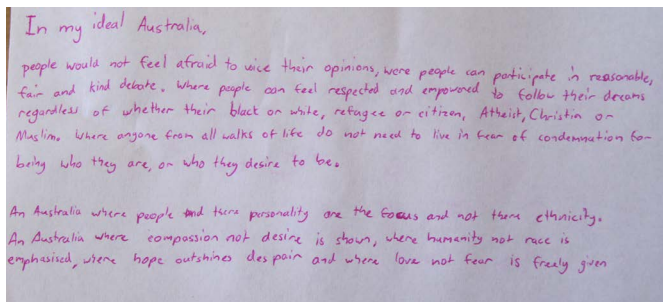 In my ideal Australia,
people would not feel afraid to voice their opinions, were people can participate in reasonable,
fair and kind debate. Where people can feel respected and empowered to follow their dreams
regardless of whether their black or white, refugee or citizen, Atheist, Christin or
Muslim. Where anyone from all walks of life do not need to live in fear of condemnation for
being who they are, or who they desire to be.
An Australia where people and there personality are the focus and not there ethnicity.
An Australia where compassion not desire is shown, where humanity not race is
emphasised, where hope outshines despair and where love not fear is freely given